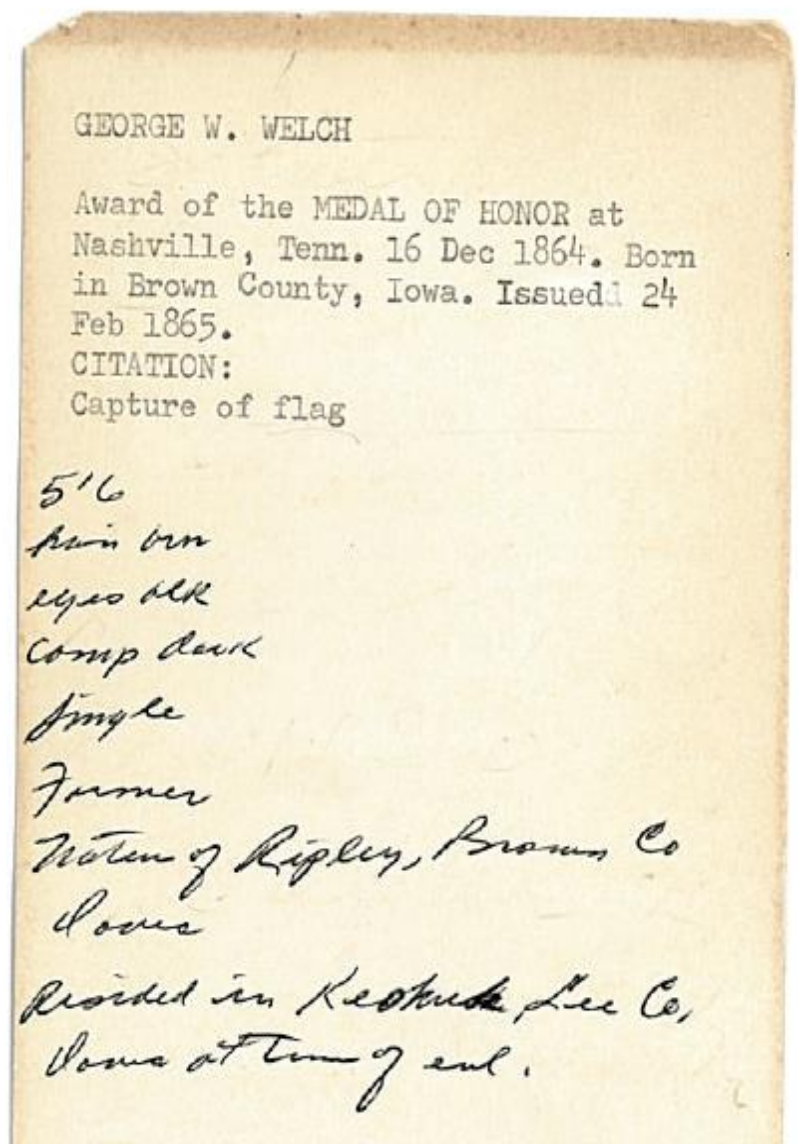 GEORGE W. WELCH
Award of the MEDAL OF HONOR at
Nashville, Tenn. 16 Dec 1864. Born
in Brown County, Iowa. Issued 24
Feb 1865.
CITATION:
Capture of flag
5'6
hair brn
eyes blk
comp dark
single
Farmer
Native of Ripley, Brown Co
Iowa
Resided in Keokuk, Lee Co,
Iowa at time of enl.